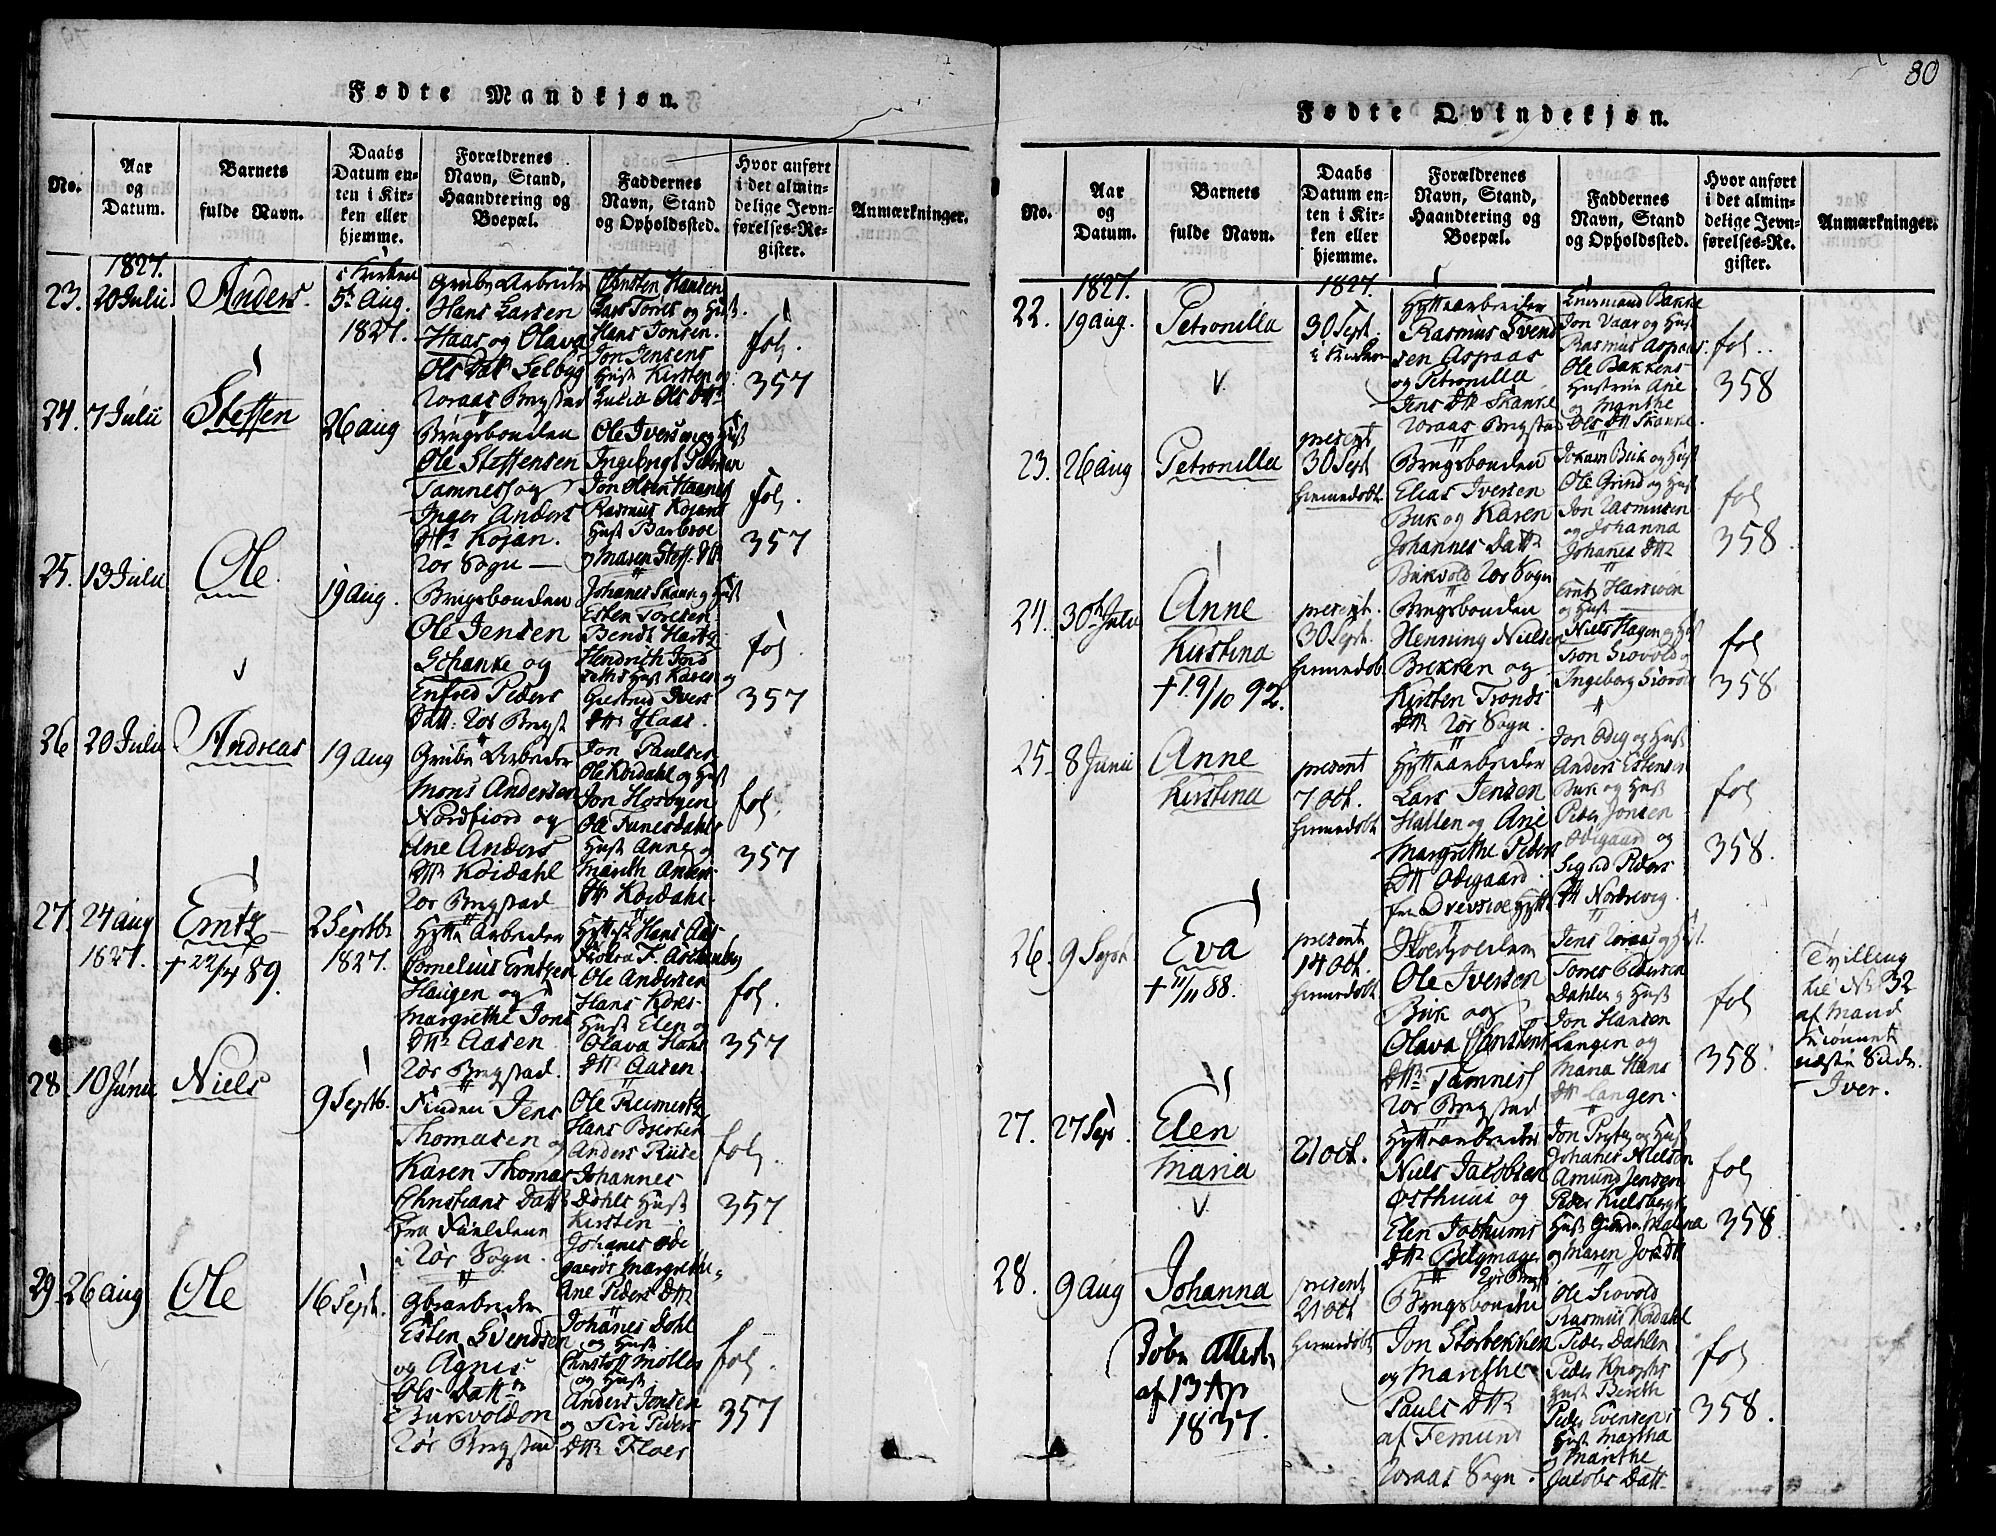 80
Fødte Mandkjøn.
No.
Aar og Datum.
Barnets fulde Navn.
Daabs Datum enten i Kirken eller hjemme.
Forældrenes Navn, Stand, Haandtering og Boepæl.
Faddernes Navn, Stand og Opholdssted.
Hvor anført i det almindelige Jevnførelses-Register.
Anmærkninger.
1827.
23. 20 Julii
Anders.
i Kirken
5te Aug.
1827.
Grube Arbeider
Hans Larsen
Haas og Olava
Ols Datt Selbyg
Roraas Bergstad
Chrsten Hansen
Lars Torres og Hust.
Hans Jonsen.
Jon Jensens
Hust Kirsten og
Lucia Ols Dtr
fol.
357
24. 7 Julii
Steffen
26 aug
Brugsbonden
Ole Steffensen
Tamness og
Inger Anders
Dtr Kojan.
Rør Sogn —
Ole Iversens og Hust
Jon Olsen Haanes
Rasmus Kojans
Hust Barbroe
og Maren Steff. Dtr
fol.
357
25. 13 Julii
Ole
19 aug.
Brugsbonden
Ole Jensen
Schanke og
Enfred Peders
Datt: Rør Bergst
Johanes Skanke og Hust
Esten Toresen
Bendt Hartz
Hust Karen og
Giertrud Ivers
Dtr Haas.
fol.
357
26 20 Julii
Andreas
19 aug
Grube Arbeider
Mons Andersen
Nordfiord og
Ane Anders
Dtr Koidahl
Rør Bergstad
Jon Paulsen
Ole Koidahl og Hust
Ole Funesdahls
Hust Anne og
Marith Anders
Dtr Koidahl.
fol.
357
27. 24 aug
1827.
Erntz
+ 22/4 89.
2 Septbr
1827.
Hytte Arbeider
Cornelius Erntzen
Haugen og
Margrethe Jons
Dtr Aasen
Rør Bergstad.
Ole Andersen
Hans Kores
Hust Elen og
Olava Hans
Dtr Aasen.
fol.
357
28 10 Junii
Niels
9 Septb.
Finden Jens
Thomasen og
Karen Thomas
Christians Datt
fra Fieldene
i Rør Sogn.
Ole Reimertz
Anders Riise
Johannes
Dahls Hust
Kirsten
Johanes Øde
gaards Margrethe
Ane Peders Dtr
fol.
357
29 26 aug
Ole
16 Sept.
Gbrarbeider
Esten Svendsen
og Agnes
Ols Datter
Rør Bergstad
Johanes Dohl
og Hust
Christoff Møller
og Hust
Anders Jonsen
og Siri Peders
Dtr Floer
fol.
357
Fødte Qvindekjøn.
No.
Aar og Datum.
Barnets fulde Navn.
Daabs Datum enten i Kirken eller hjemme.
Forældrenes Navn, Stand, Haandtering og Boepæl.
Faddernes Navn, Stand og Opholdssted.
Hvor anført i det almindelige Jevnførelses-Register.
Anmærkninger.
1827.
22. 19 aug.
Petronilla
1827.
30 Sept.
i Kirken
Hyttearbeider
Rasmus Svend
sen Aspaas
og Petronilla
Jens Dtr Skanke
Roraas Bergstad
Jon Vaar og Hust
Rasmus Aspaas
Ole Bakkens
Hustrue Ane
og Marithe
Ols Dtr Skanke.
fol.
358
23. 26 aug
Petronilla
present
30 Sept
hiemedøbt
Brugsbonden
Elias Iversen
Buk og Karen
Johannes Datt
Bukvold Rør Sogn
Johan Buk og Hust
Ole Grind og Hust
Jon Rasmusen
og Johanna
Johanes Dtr
fol
358.
24. 30te Julii
Anne
Kirstina
+ 19/10 92.
present.
30 Sept.
hiemedøbt
Brugsbonden
Henning Nielsen
Brekken og
Kirsten Tronds
Dtr Rør Sogn.
og Hust
Niels Hagen og Hust
Tron Siovold og
Ingeborg Siovold
fol
358
25 8 Junii
Anne
Kirstina
present
7 Oct.
hiemedøbt
Hyttearbeider
Lars Jensen
Hallen og Ane
Margrethe Peders
Dtr Ødegaard.
fra Drevsioe Hytte
Anders Estensen
Buk og Hust
Peder Jonsen
Ødegaard og
Sigrid Peders
Dtr Nordrevig
fol
358.
26. 9 Sept
Eva
+ 11/11 88.
present
14 Oct.
hiemedøbt
Ole Iversen
Buk og
Olava Christens
Dtr Tamness
Rør Bergstad
Jens Roraas og Hust.
Torres Pedersen
Dahlen og Hust
Jon Hansen
Langen og
Maria Hans
Dtr Langen.
fol
358.
Tvilling
til No 32
af Mand
kiønnet
næste Side.
Iver.
27. 27 Sept.
Elen
Maria
21 Oct.
Hyttearbeider
Niels Jacobsen
Østhuus og
Elen Jochums
Dtr Belgmager
Rør Bergst
Jon Prytz og Hust
Johanes Nielsen
Amund Jensen
Peder Kielsbergs
Hust Gunder Malena
og Maren Jons Dtr
fol
358
28. 9 Aug
Johanna
Døbe attest
af 13 Ap
1837.
present
21 Oct
hiemedøbt
Brugsbonden
Jon Storbekken
og Marithe
Pauls Dtr
af Femund
Roraas Sogn.
Ole Siovold
Rasmus Koidahl
Peder Dahlen
Peder Knophs
Hust Berith
Peder Evensens
Hust Martha
og Marithe
Jacobs Datt
fol
358.